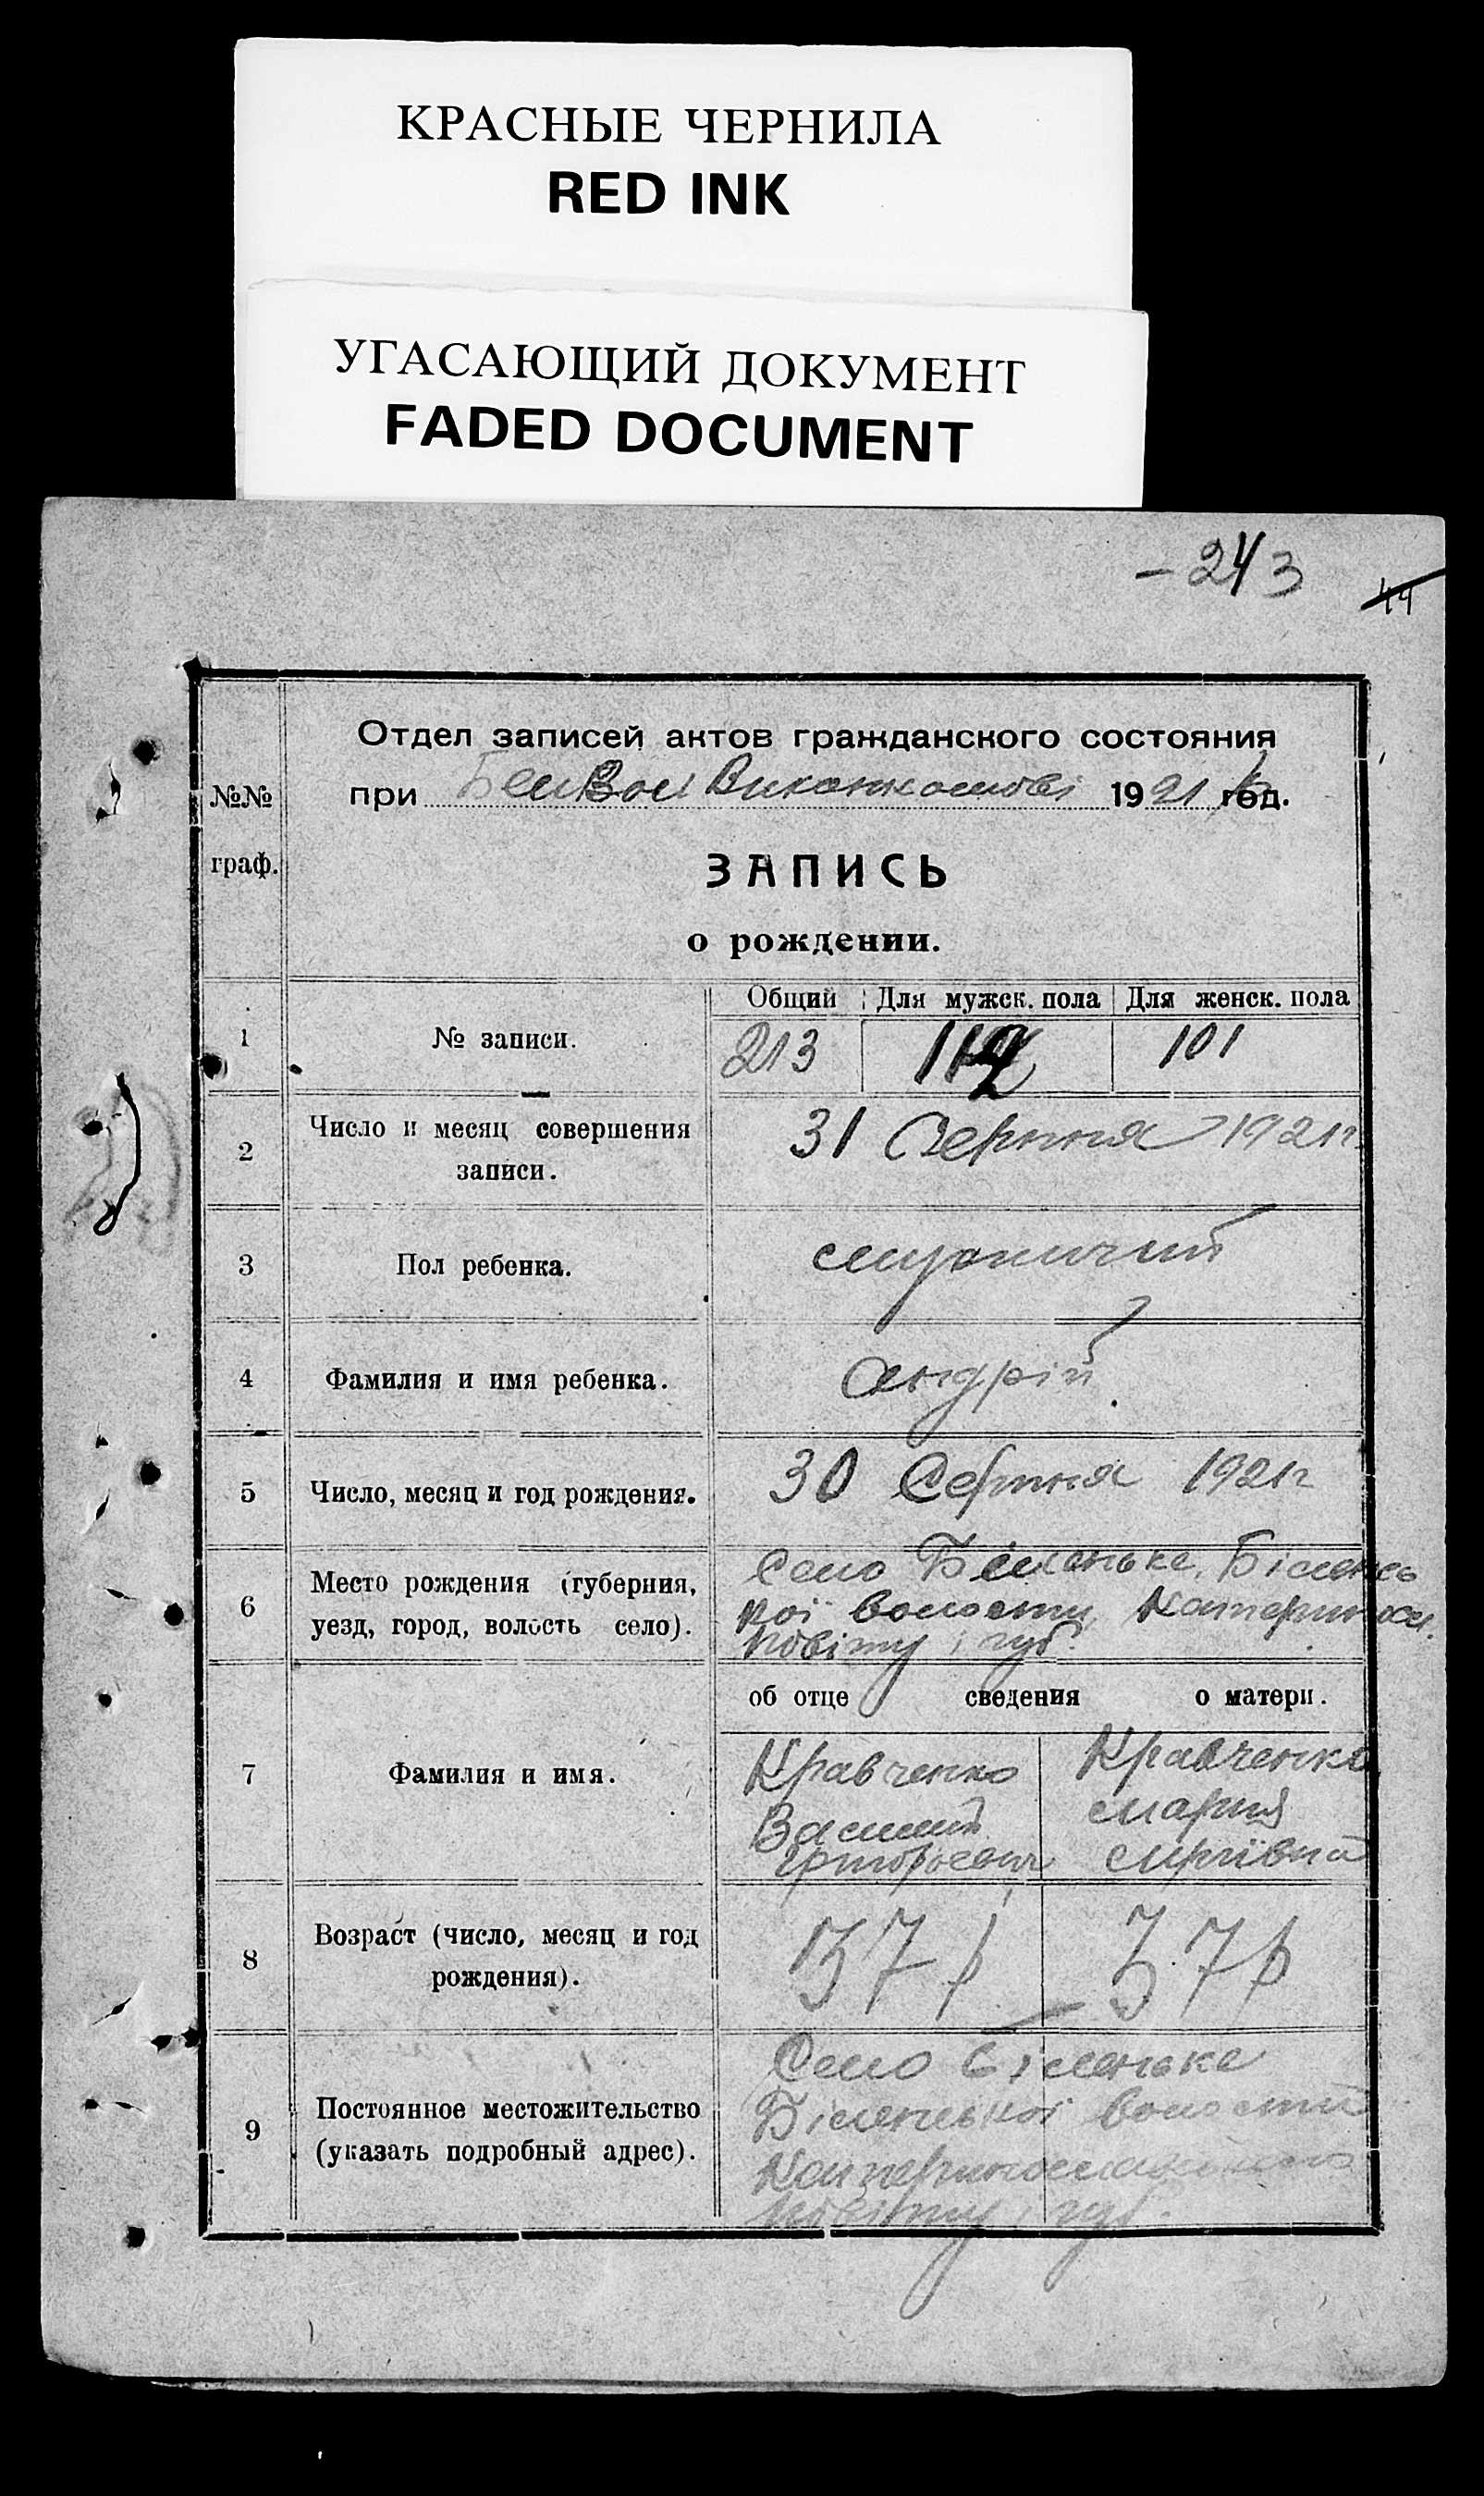 КРАСНЫЕ ЧЕРНИЛА
RED INK
УГАСАЮЩИЙ ДОКУМЕНТ
FADED DOCUMENT
- 243
44
№№ граф.
Отдел записей актов гражданского состояния
при БілВол Виконкомові 1921 р год.
ЗАПИСЬ
о рождении.
Общий Для мужск. пола Для женск. пола
1 № записи. 213 112 101
2 Число и месяц совершения записи. 31 Серпня 1921 р.
3 Пол ребенка. мужичий
4 Фамилия и имя ребенка. Андрій
5 Число, месяц и год рождения. 30 Серпня 1921 р
6 Место рождения (губерния, уезд, город, волость село). Село Біленьке, Біленсь
кої волости, Катериносл.
повіту і губ.
об отце сведения о матери.
7 Фамилия и имя. Кравченко Кравченко
Василий Мария
Григорьевич
8 Возраст (число, месяц и год рождения). 37 р 37 р
9 Постоянное местожительство (указать подробный адрес). Село Біленьке
Біленської волости
Катеринославського
повіту і губ.